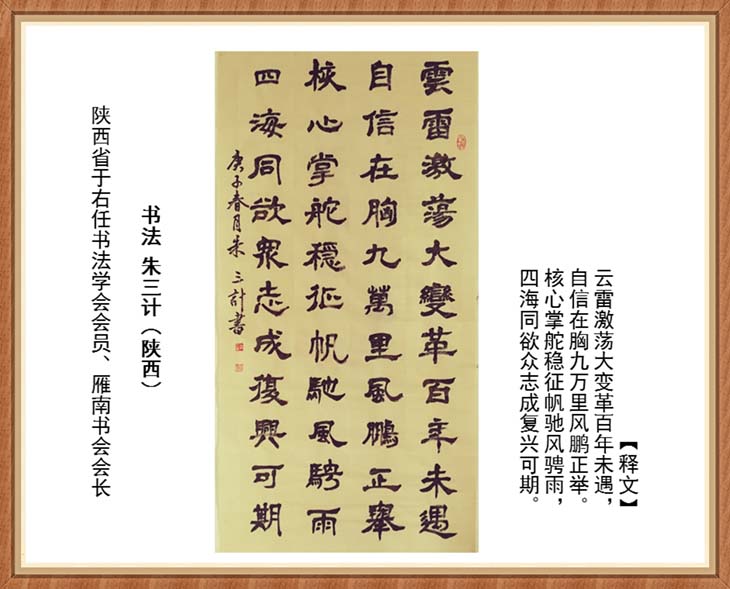 【释文】
云雷激荡大变革百年未遇，
自信在胸九万里风鹏正举。
核心掌舵稳征帆驰风骋雨，
四海同欲众志成复兴可期。
雲雷激荡大變革百年未遇
自信在胸九萬里風鵬正舉
核心掌舵穩征帆馳風騁雨
四海同欲衆志成復興可期
庚子春月朱三計書
书法 朱三计（陕西）
陕西省于右任书法学会会员、雁南书会会长